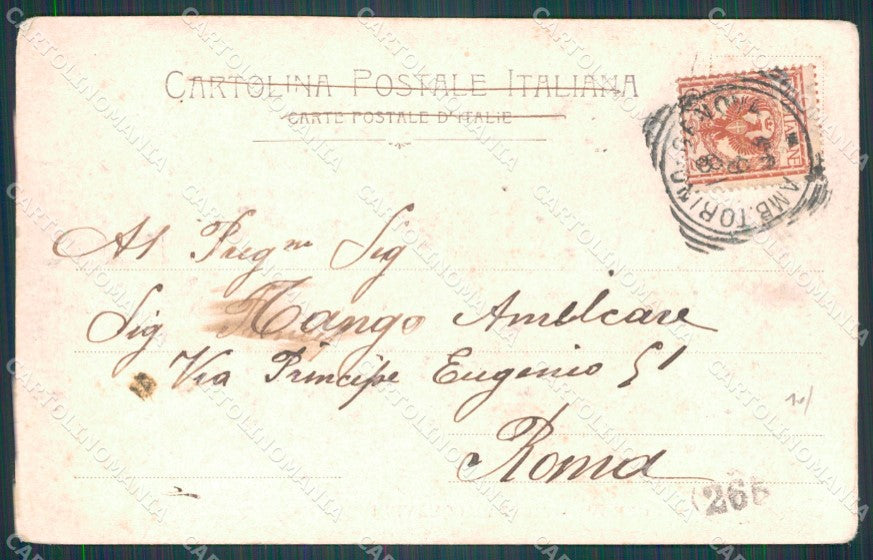 CARTOLINA POSTALE ITALIANA
CARTE POSTALE D'ITALIE
AMB. TORINO-
Al Pregmo Sig
Sig Mango Amilcare
Via Principe Eugenio 51
Roma
(266
CARTOLINOMANIA